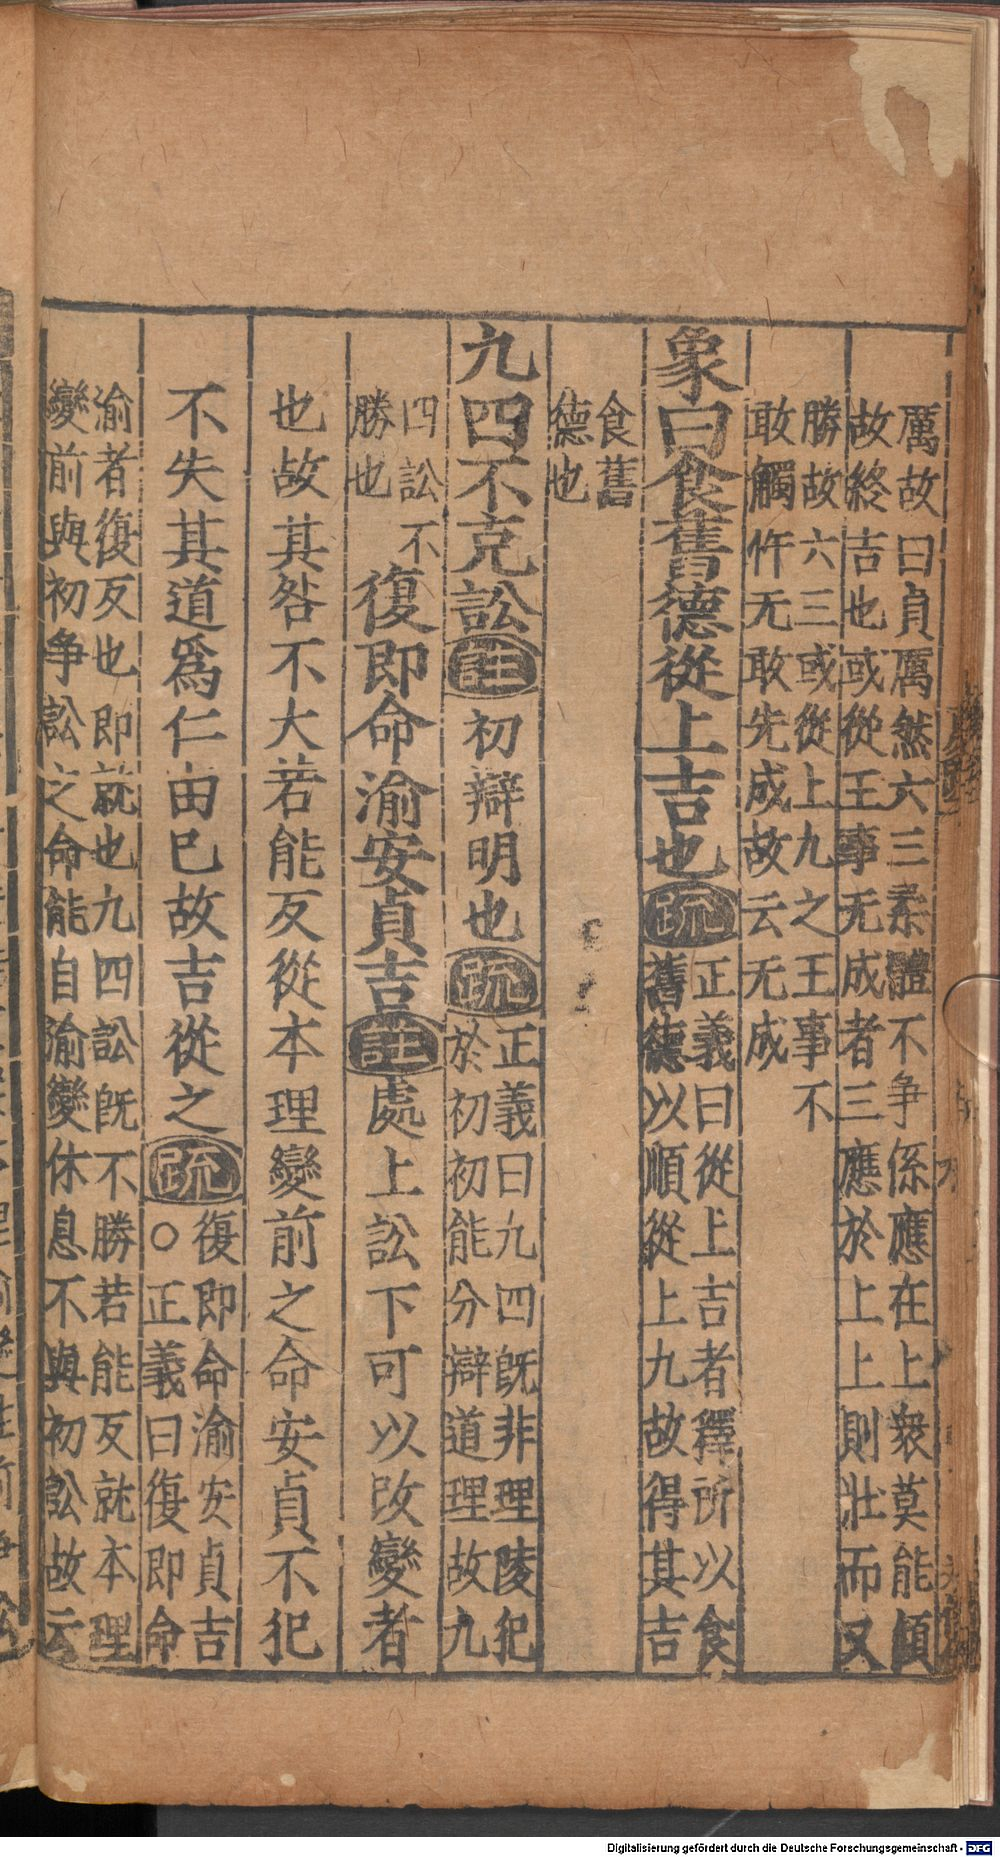 厲故曰貞厲然六三柔體不爭係應在上衆莫能傾
故終吉也或從王事无成者三應於上上則壯而又
勝故六三或從上九之王事不
敢觸忤无敢先成故云无成
象曰食舊德從上吉也疏
正義曰從上吉者釋所以食
舊德以順從上九故得其吉
食舊
德也
九四不克訟註初辯明也疏
正義曰九四旣非理陵犯
於初初能分辯道理故九
四訟不
勝也
復即命渝安貞吉註處上訟下可以改變者
也故其咎不大若能反從本理變前之命安貞不犯
不失其道爲仁由已故吉從之疏
復即命渝安貞吉
○正義曰復即命
渝者復反也即就也九四訟旣不勝若能反就本理
變前與初爭訟之命能自渝變休息不與初訟故云
Digitalisierung gefördert durch die Deutsche Forschungsgemeinschaft - DFG